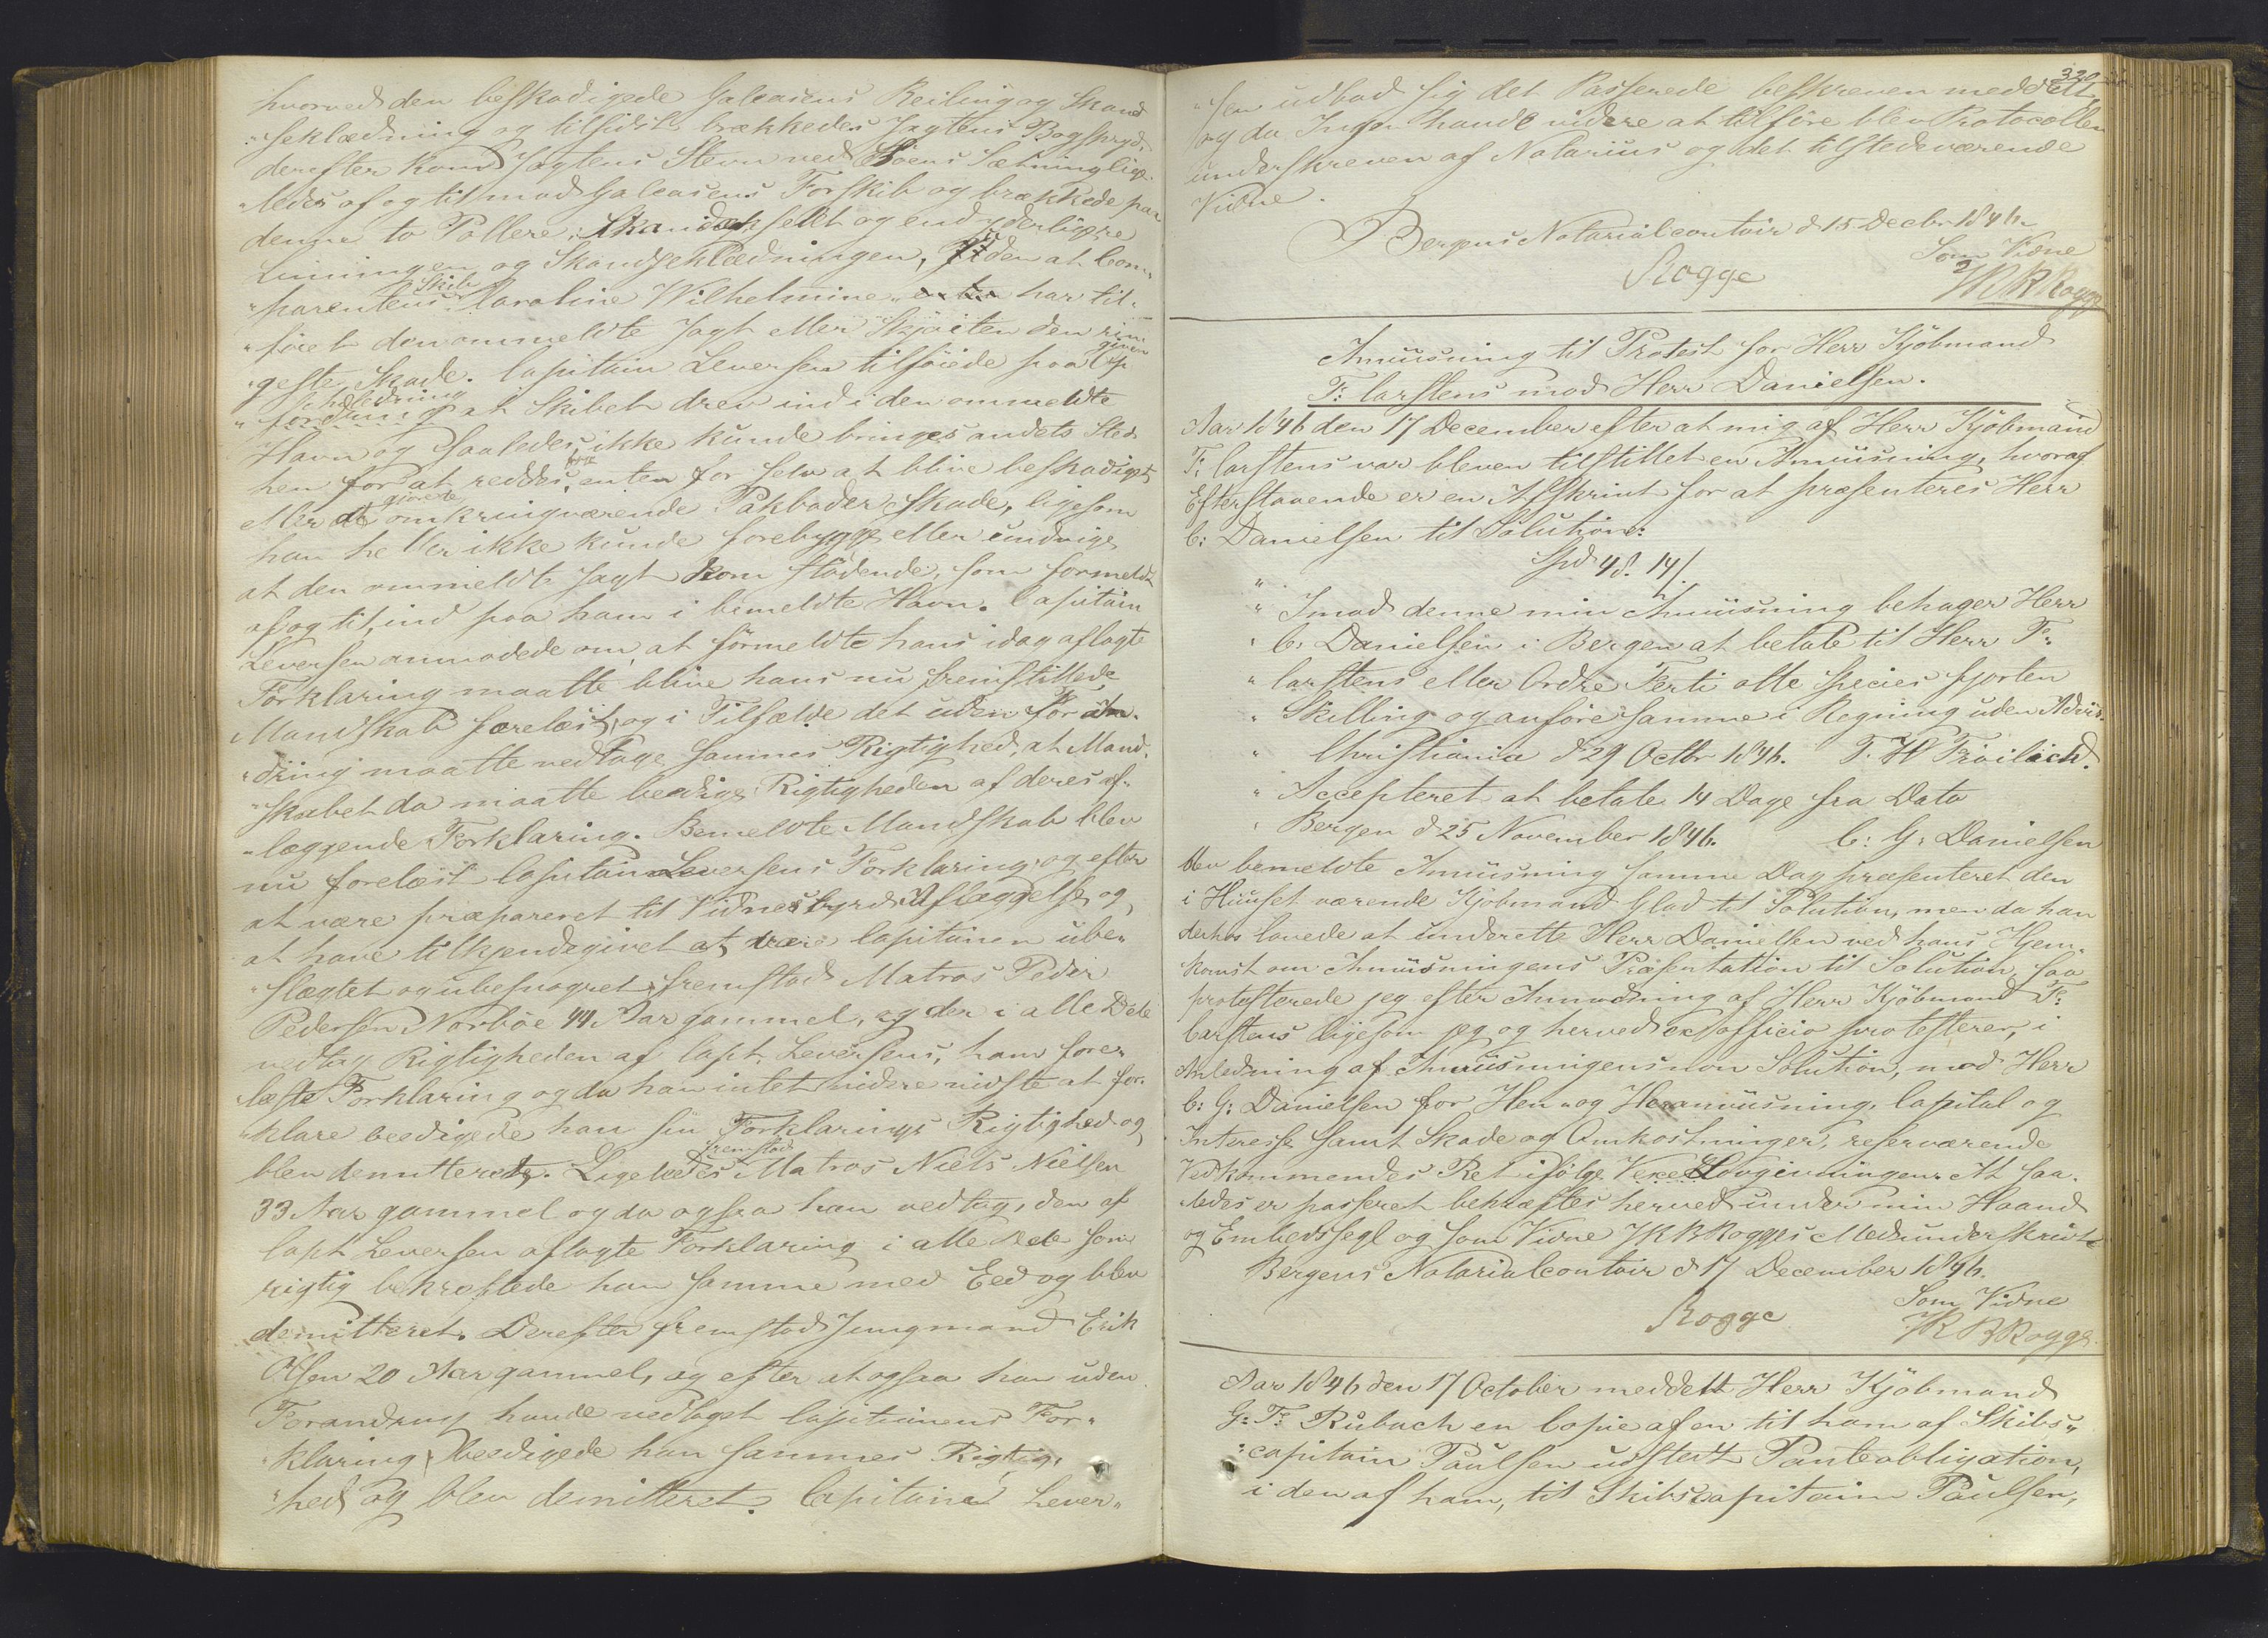 hvorved den beskadigede Galeasens Reiling og Skand
"seklædning og tilsidst brækkedes Jagtens Bogspryd,
derefter kom Jagtens Stevn ved Söens Sætning lige-
"ledes af og til mod Galeasens Forskib og brækkede paa
denne to Pollere, Skandæksellt og end yderligere
Linningen og Skandseklædningen, uden at Com-
"parentens Skib Caroline Wilhelmine har til-
"föiet den ommeldte Jagt eller Skjöiten den rin
"geste Skade. Capitain Leversen tilföiede paa given
"fordring at Skibet drev ind i den ommeldte
Havn og saaledes ikke kunde bringes andets Sted
hen for at reddes, enten for selv at blive beskadiget
eller at gjörede omkringværende Pakboder Skade, ligesom
han heller ikke kunde forebygge eller undvige
at den ommeldte Jagt kom stödende, som formeldt
af og til, ind paa ham i bemeldte Havn. Capitain
Leversen anmodede om, at förmeldte hans idag aflagte
Forklaring maatte blive hans nu fremstillede
Mandskab forelæst, og i Tilfælde det uden Foran-
"dring maatte vedtage sammes Rigtighed, at Mand-
"skabet da maatte beedige Rigtigheden af deres af-
"læggende Forklaring. Bemeldte Mandskab blev
nu forelæst Capitain Leversens Forklaring og efter
at være præpareret til Vidnesbyrds Aflæggelse og
at have tilkjendegivet at være Capitainen ube-
"slægtet og ubesvogret, fremstod Matros Peder
Pedersen Norböe 44 Aar gammel, og der i alle Dele
vedtog Rigtigheden af Capt. Leversens, ham fore-
"læste Forklaring og da han intet videre vidste at for-
"klare beedigede han sin Forklarings Rigtighed og
blev demitteret. Ligeledes fremstod Matros Niels Nielsen
33 Aar gammel og da ogsaa han vedtog, den af
Capt Leversen aflagte Forklaring i alle Dele som
rigtig bekræftede han samme med Eed og blev
demitteret. Derefter fremstod Jungmand Erik
Olsen 20 Aar gammel, og efter at ogsaa han uden
Forandring havde vedtaget Capitainens For-
"klaring, beedigede han sammes Rigtig-
"hed og blev demitteret. Capitaine Lever-
320
"sen udbad sig det Passerede beskreven meddelt,
og da Ingen havde videre at tilföre blev Protocollen
underskreven af Notarius og det tilstedeværende
Vidne.
Bergens Notarialcontoir d 15 Decbr 1846.
Som Vidne
Rogge JRBRogge
Anviisning til Protest for Herr Kjöbmand
F: Carstens mod Herr Danielsen.
Aar 1846 den 17 December efter at mig af Herr Kjöbmand
F: Carstens var bleven tilstillet en Anviisning, hvoraf
Efterstaaende er en Afskrivt for at præsenteres Herr
C: Danielsen til Solution:
Spd 48. 14ſ.
" Imod denne min Anviisning behager Herr
" C. Danielsen i Bergen at betale til Herr F:
" Carstens eller Ordre Förti otte Species fjorten
" Skilling og anföre samme i Regning uden Adviis.
" Christiania d 29 Octbr 1846. T. H Fröilich.
" Accepteret at betale 14 Dage fra Dato
" Bergen d 25 November 1846. C: G: Danielsen
blev bemeldte Anviisning samme Dag præsenteret den
i Huuset værende Kjöbmand Glad til Solution, men da han
derhos lovede at underette Herr Danielsen ved hans Hjem-
komst om Anviisningens Præsentation til Solution, saa
protesterede jeg efter Anmodning af Herr Kjöbmand F:
Carstens ligesom jeg og herved ex officio protesterer, i
Anledning af Anviisningens non Solution, mod Herr
C: G: Danielsen for Hen- og Heranviisning, Capital og
Interesse samt Skade og Omkostninger, reserverende
Vedkommendes Ret ifölge Vexellovgivningen. At saa-
ledes er passeret bekræftes herved under min Haand
og Embedssegl og som Vidne JRBRogges Medunderskrivt
Bergens Notarialcontoir d 17 December 1846.
Som Vidne
Rogge JRBRogge
Aar 1846 den 17 October meddelt Herr Kjöbmand
G: F: Rubach en Copie af en til ham af Skibs-
"capitain Paulsen udstedt Panteobligation,
i den af ham, til Skibscapitain Paulsen,